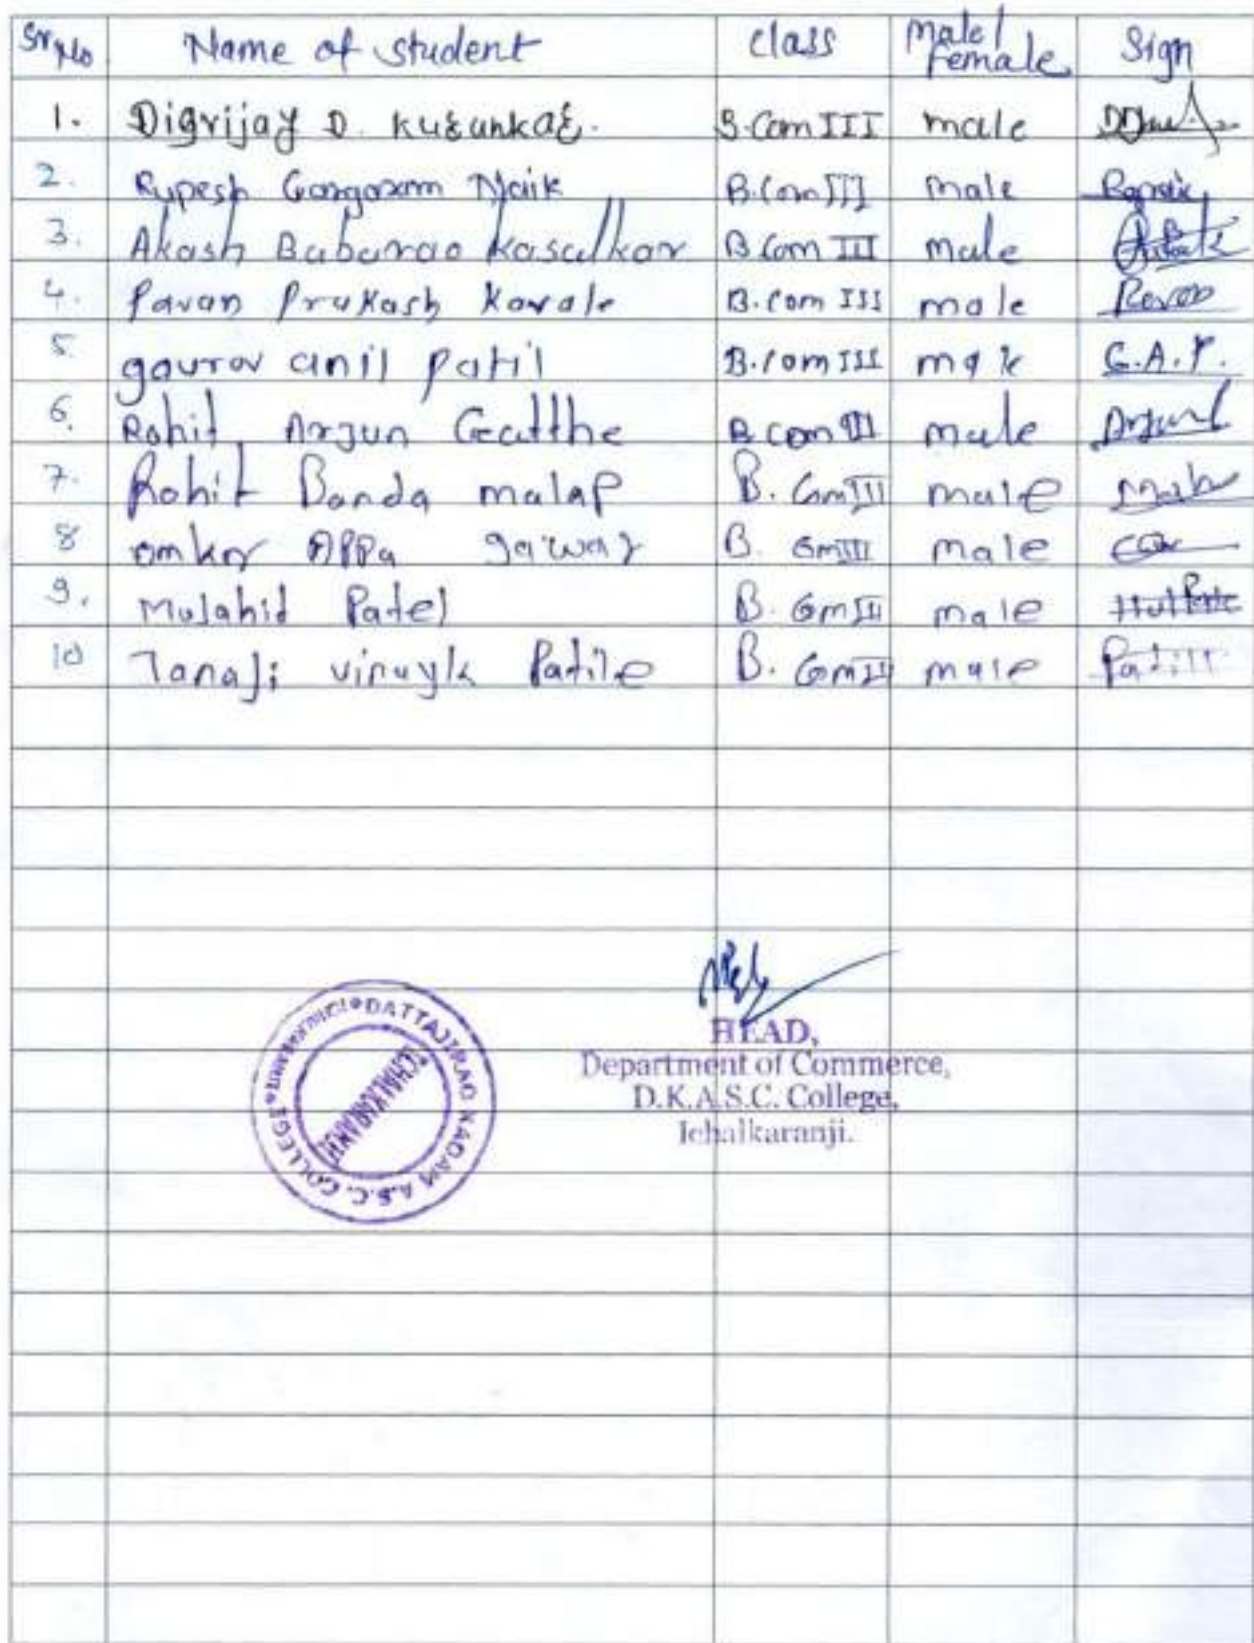 Sr No Name of student class male/female Sign
1. Digvijay D. Kurunkar. B.Com III male
2. Rupesh Gangaram Naik B.Com III male
3. Akash Baburao Kasalkar B.Com III male
4. Pavan Prakash Kavale B.com III male
5. gaurav anil patil B.com III male G.A.P.
6. Rohit Arjun Gatthe B.com III male
7. Rohit Banda malap B. Com III male
8 omkar APPa gaiwar B. Com III male
9. Mujahid Patel B. Com III male
10 Tanaji vinayk Patile B. Com III male
HEAD,
Department of Commerce,
D.K.A.S.C. College,
Ichalkaranji.
DATTAJIRAO KADAM A.S.C. COLLEGE
ICHALKARANJI